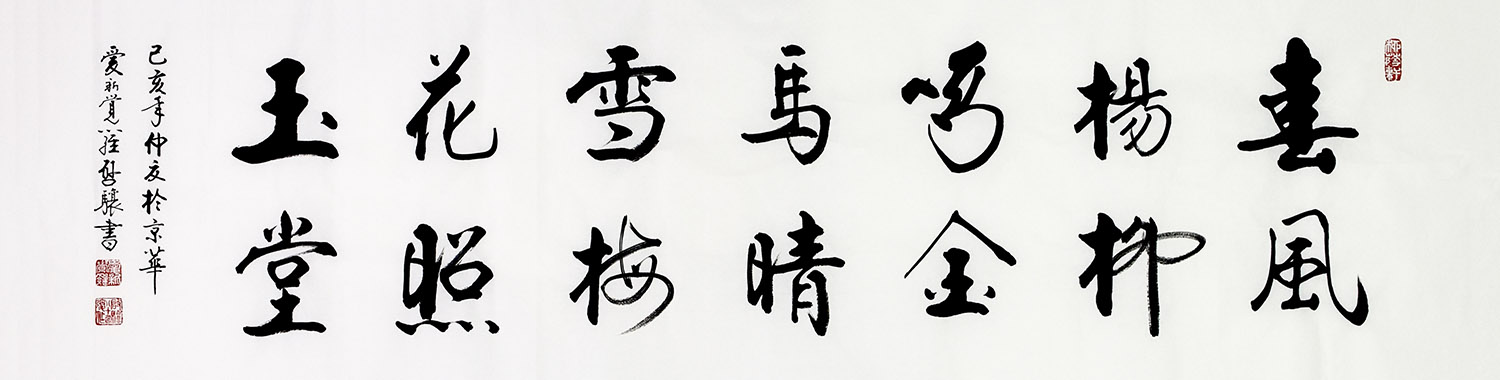 春風
楊柳
鳴金
馬晴
雪梅
花照
玉堂
己亥年仲夏於京華
愛新覺羅啓驤書